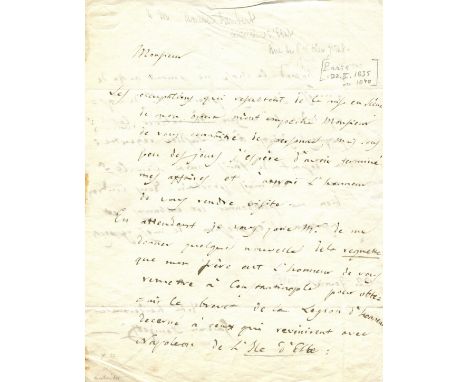 Monsieur
[Paris
22. II. 1835
ou 1840]
Les occupations qui resultent de la mise en scène
de mon opera m'ont empeché Monsieur
de vous de personne mais sous
peu des jours j'espère d'avoir terminé
mes affaires et d'avoir l'honneur
de vous rendre visite.
En attendant je vous prie Mr. de me
donner quelque nouvelle de la requette
que mon père eut l'honneur de vous
remettre à Constantinople pour obte-
nir le brevet de la Legion d'honneur
decerné à ceux qui revinrent avec
Napoleon de L'Isle d'Elbe: